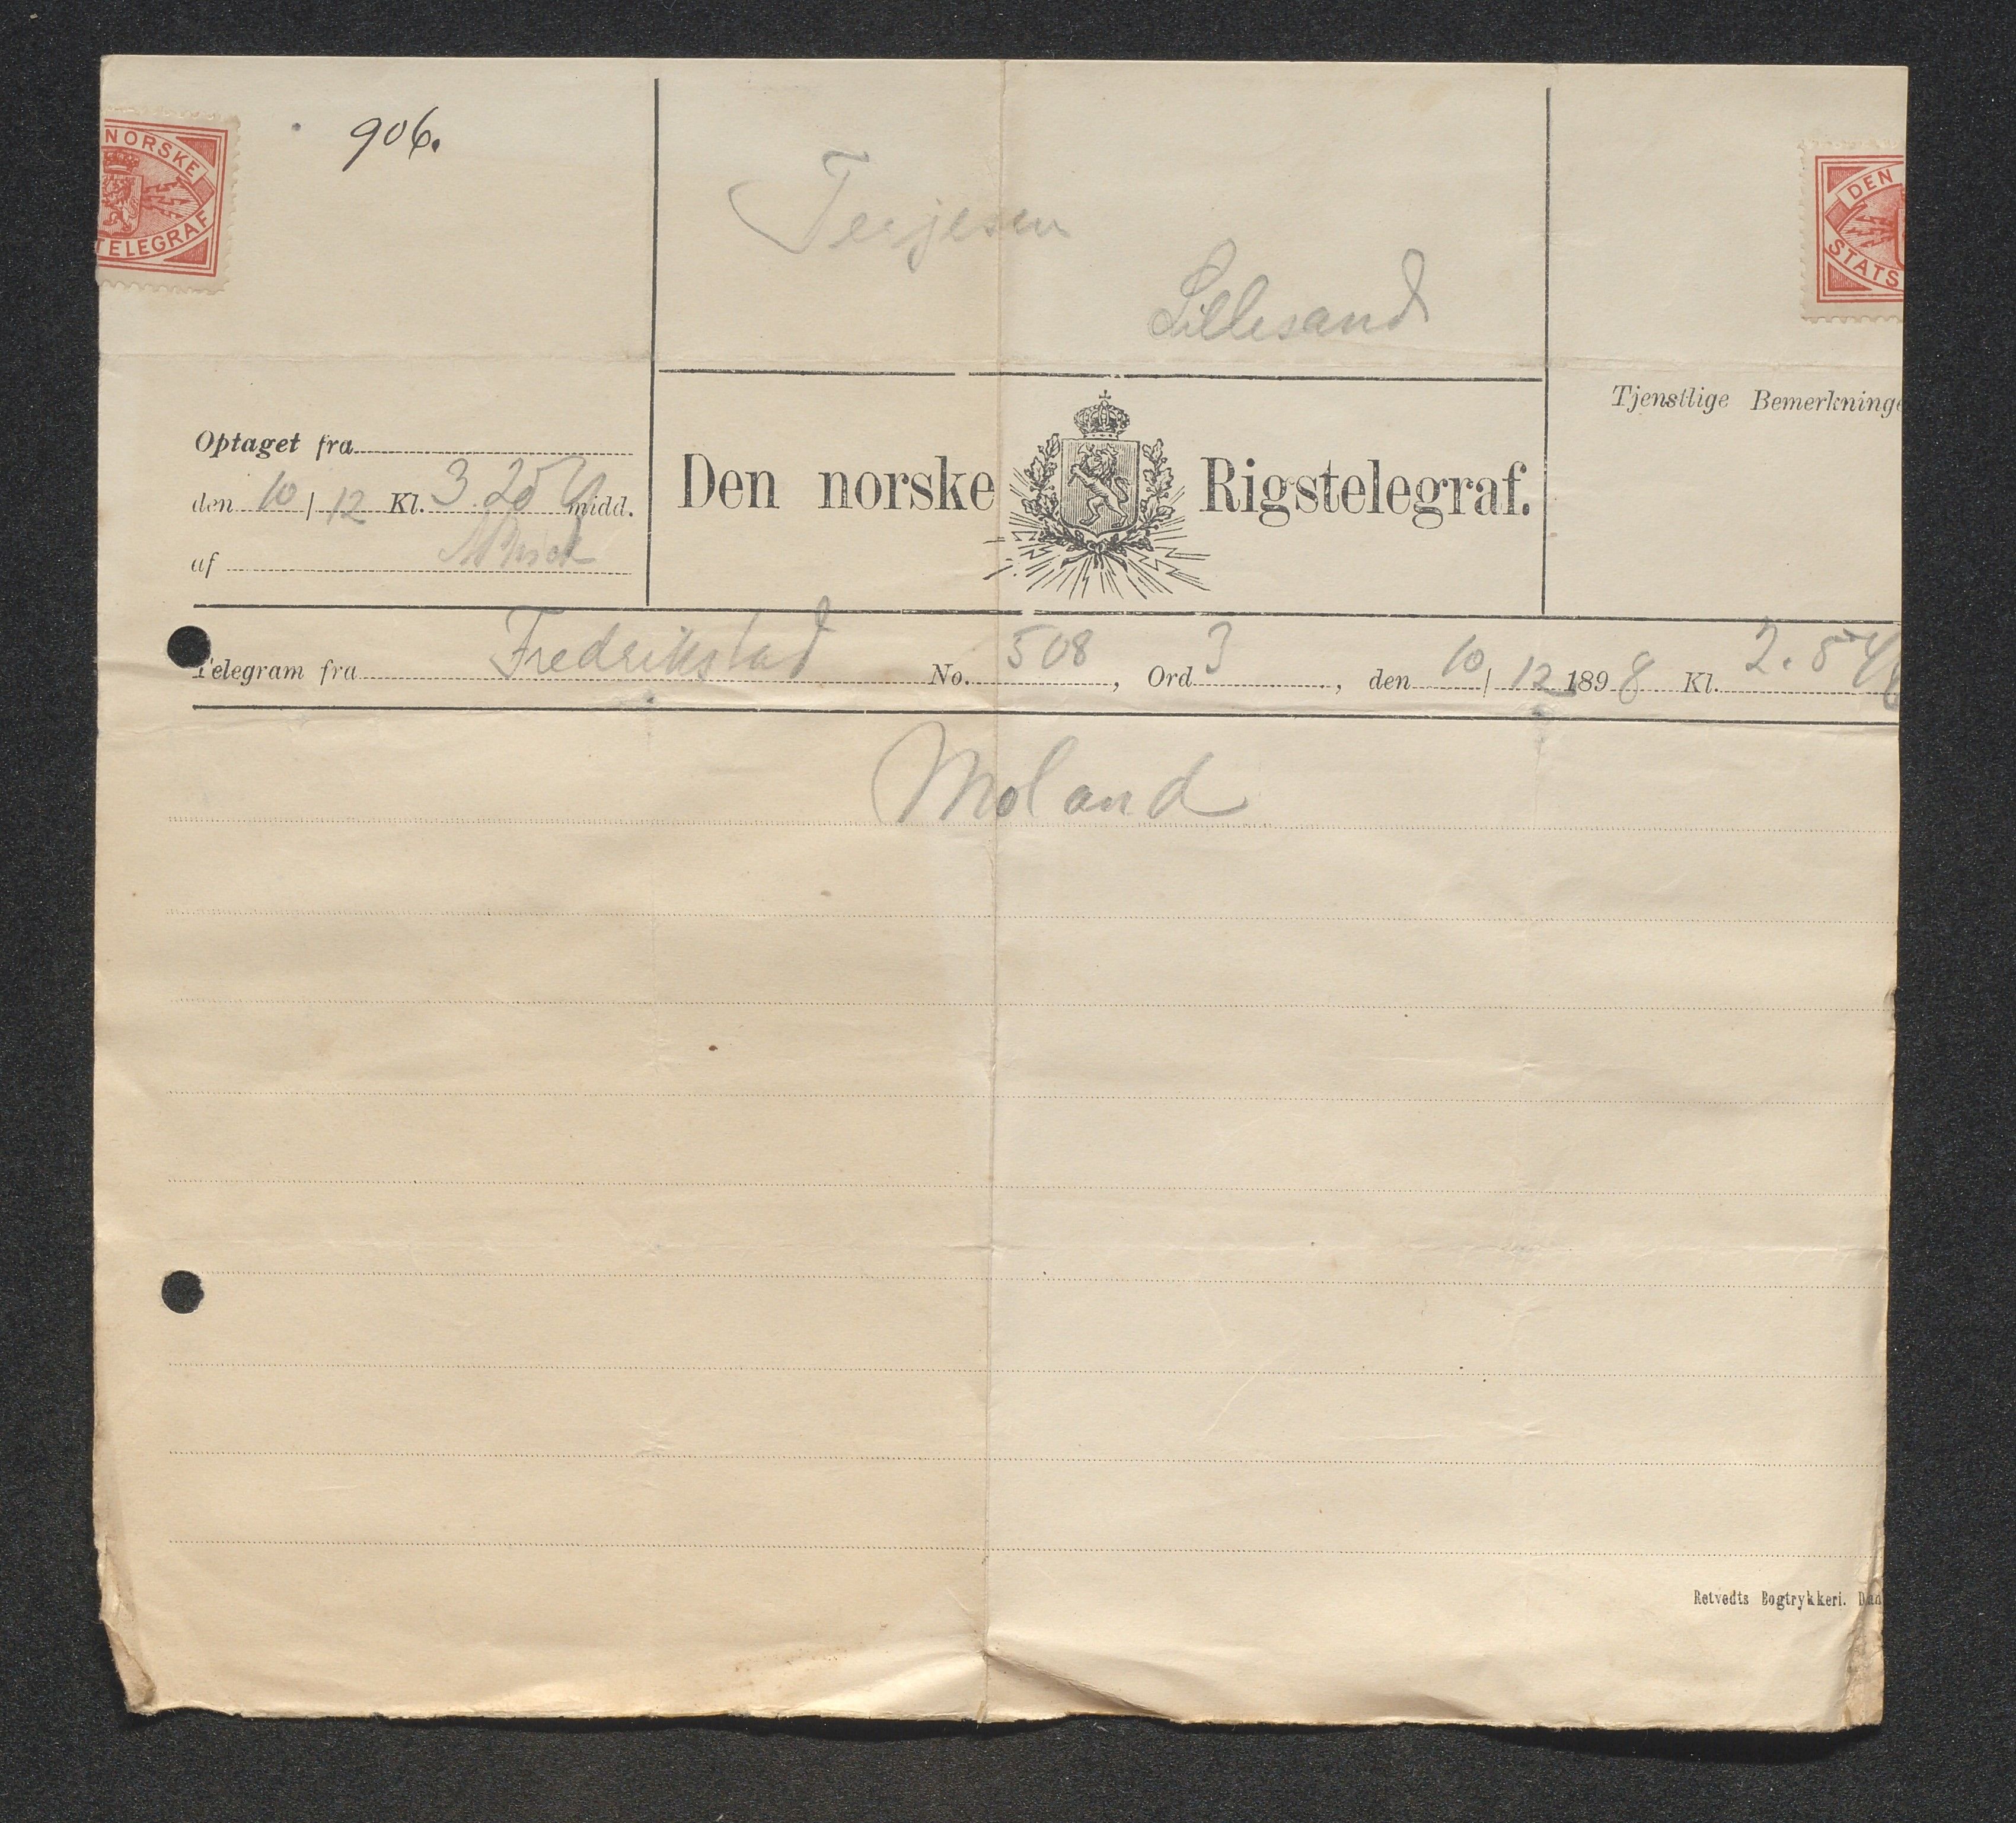 906.
NORSKE
TELEGRAF
DEN
STATS
Terjesen
Lillesand
Tjenstlige Bemerkninge
Optaget fra
den 10/12 Kl. 3.25 midd.
af
Den norske Rigstelegraf.
Telegram fra Fredrikstad No. 508, Ord 3, den 10/12 1898 Kl. 2.54
Moland
Retvedts Bogtrykkeri.